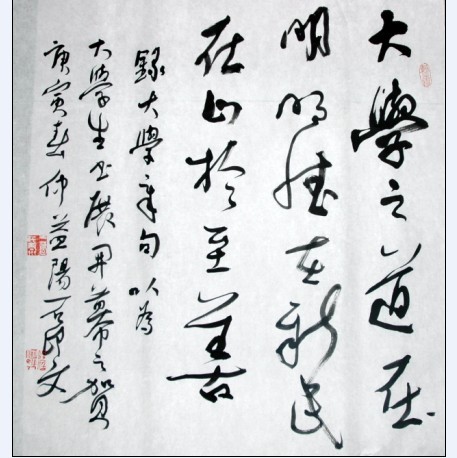 大學之道在
明明德在新民
在止於至善
錄大學章句以為
大學生書展開幕之賀
庚寅春仲益陽